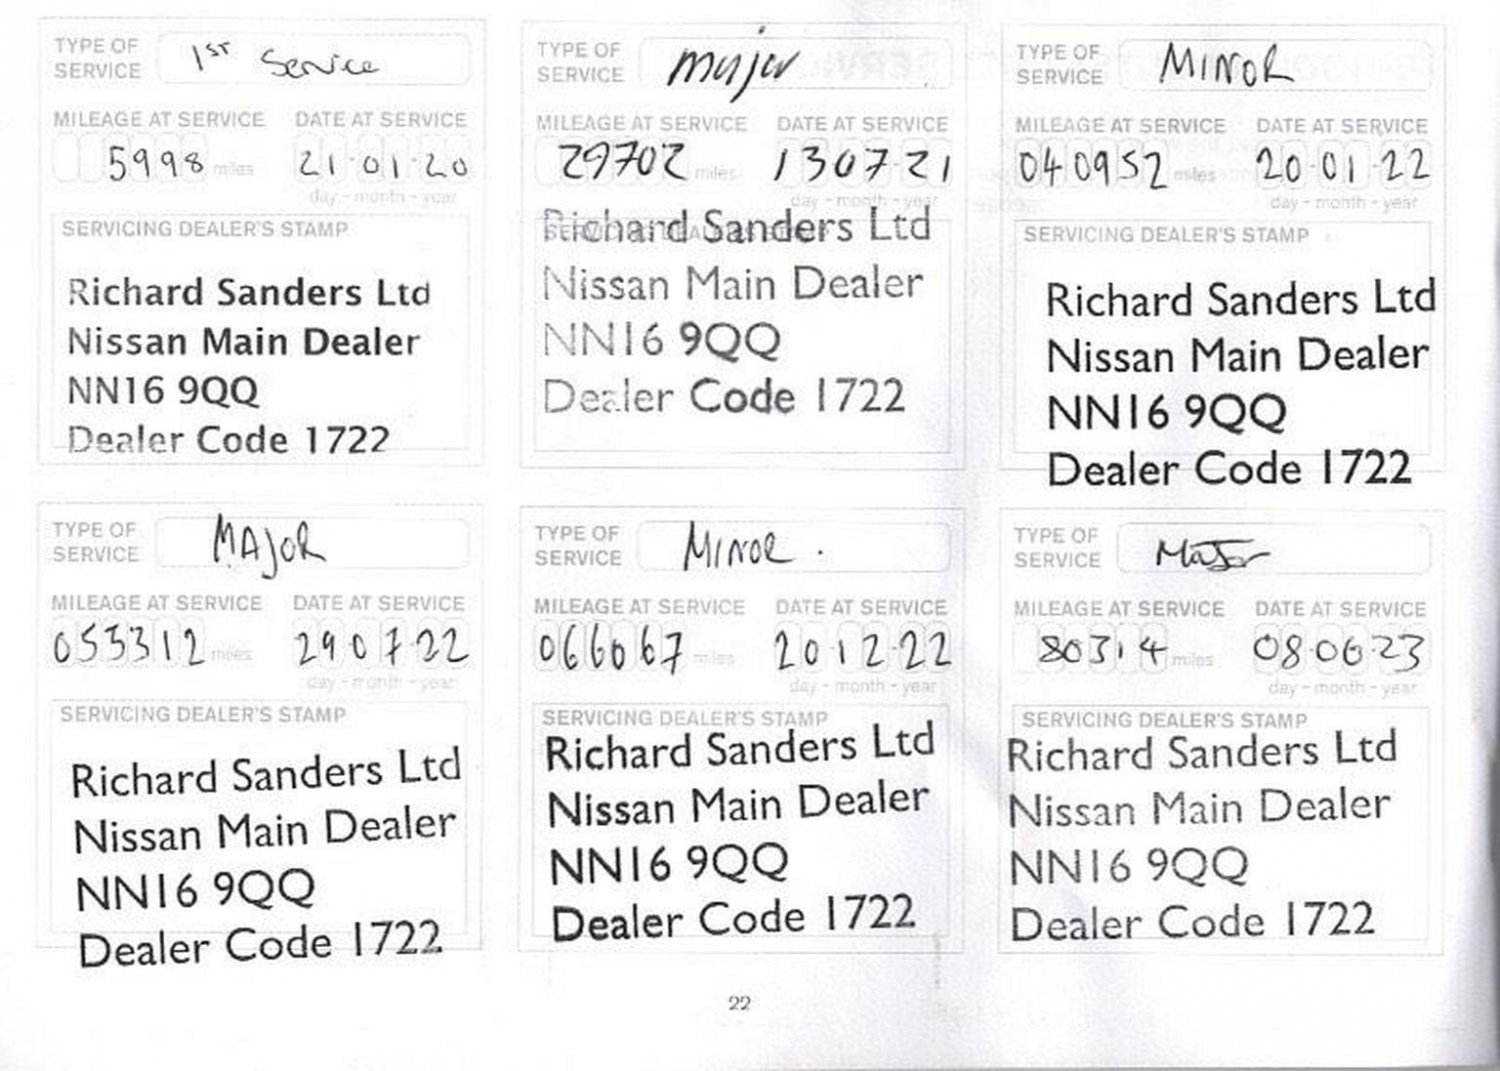 TYPE OF SERVICE 1ST Service
MILEAGE AT SERVICE DATE AT SERVICE
5998 miles 21-01-20
day - month - year
SERVICING DEALER'S STAMP
Richard Sanders Ltd
Nissan Main Dealer
NN16 9QQ
Dealer Code 1722
TYPE OF SERVICE major
MILEAGE AT SERVICE DATE AT SERVICE
29702 miles 130721
day - month - year
SERVICING DEALER'S STAMP
Richard Sanders Ltd
Nissan Main Dealer
NN16 9QQ
Dealer Code 1722
TYPE OF SERVICE MINOR
MILEAGE AT SERVICE DATE AT SERVICE
040952 miles 20-01-22
day - month - year
SERVICING DEALER'S STAMP
Richard Sanders Ltd
Nissan Main Dealer
NN16 9QQ
Dealer Code 1722
TYPE OF SERVICE MAJOR
MILEAGE AT SERVICE DATE AT SERVICE
055312 miles 290722
day - month - year
SERVICING DEALER'S STAMP
Richard Sanders Ltd
Nissan Main Dealer
NN16 9QQ
Dealer Code 1722
TYPE OF SERVICE MINOR.
MILEAGE AT SERVICE DATE AT SERVICE
066067 miles 20-12-22
day - month - year
SERVICING DEALER'S STAMP
Richard Sanders Ltd
Nissan Main Dealer
NN16 9QQ
Dealer Code 1722
TYPE OF SERVICE MaJor
MILEAGE AT SERVICE DATE AT SERVICE
80314 miles 08-06-23
day - month - year
SERVICING DEALER'S STAMP
Richard Sanders Ltd
Nissan Main Dealer
NN16 9QQ
Dealer Code 1722
22